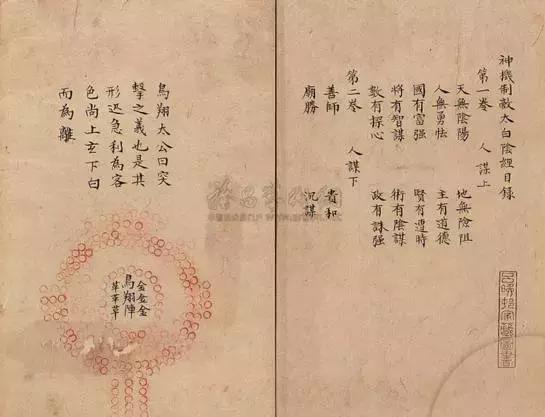 神機制敵太白陰經目錄
第一卷 人謀上
天無陰陽 地無險阻
人無勇怯 主有道德
國有富强 賢有遭時
將有智謀 術有陰謀
數有探心 政有誅强
第二卷 人謀下
善師 貴和
廟勝 沉謀
鳥翔太公曰突
擊之義也是其
形迅急利為客
色尚上玄下白
而為離
鳥翔陣